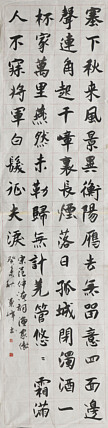 塞下秋來風景異衡陽雁去無留意四面邊
聲連角起千嶂裏長煙落日孤城閉濁酒一
杯家萬里燕然未勒歸無計羌管悠〻霜滿
人不寐將軍白髮征夫淚
宋范仲淹詞漁家傲